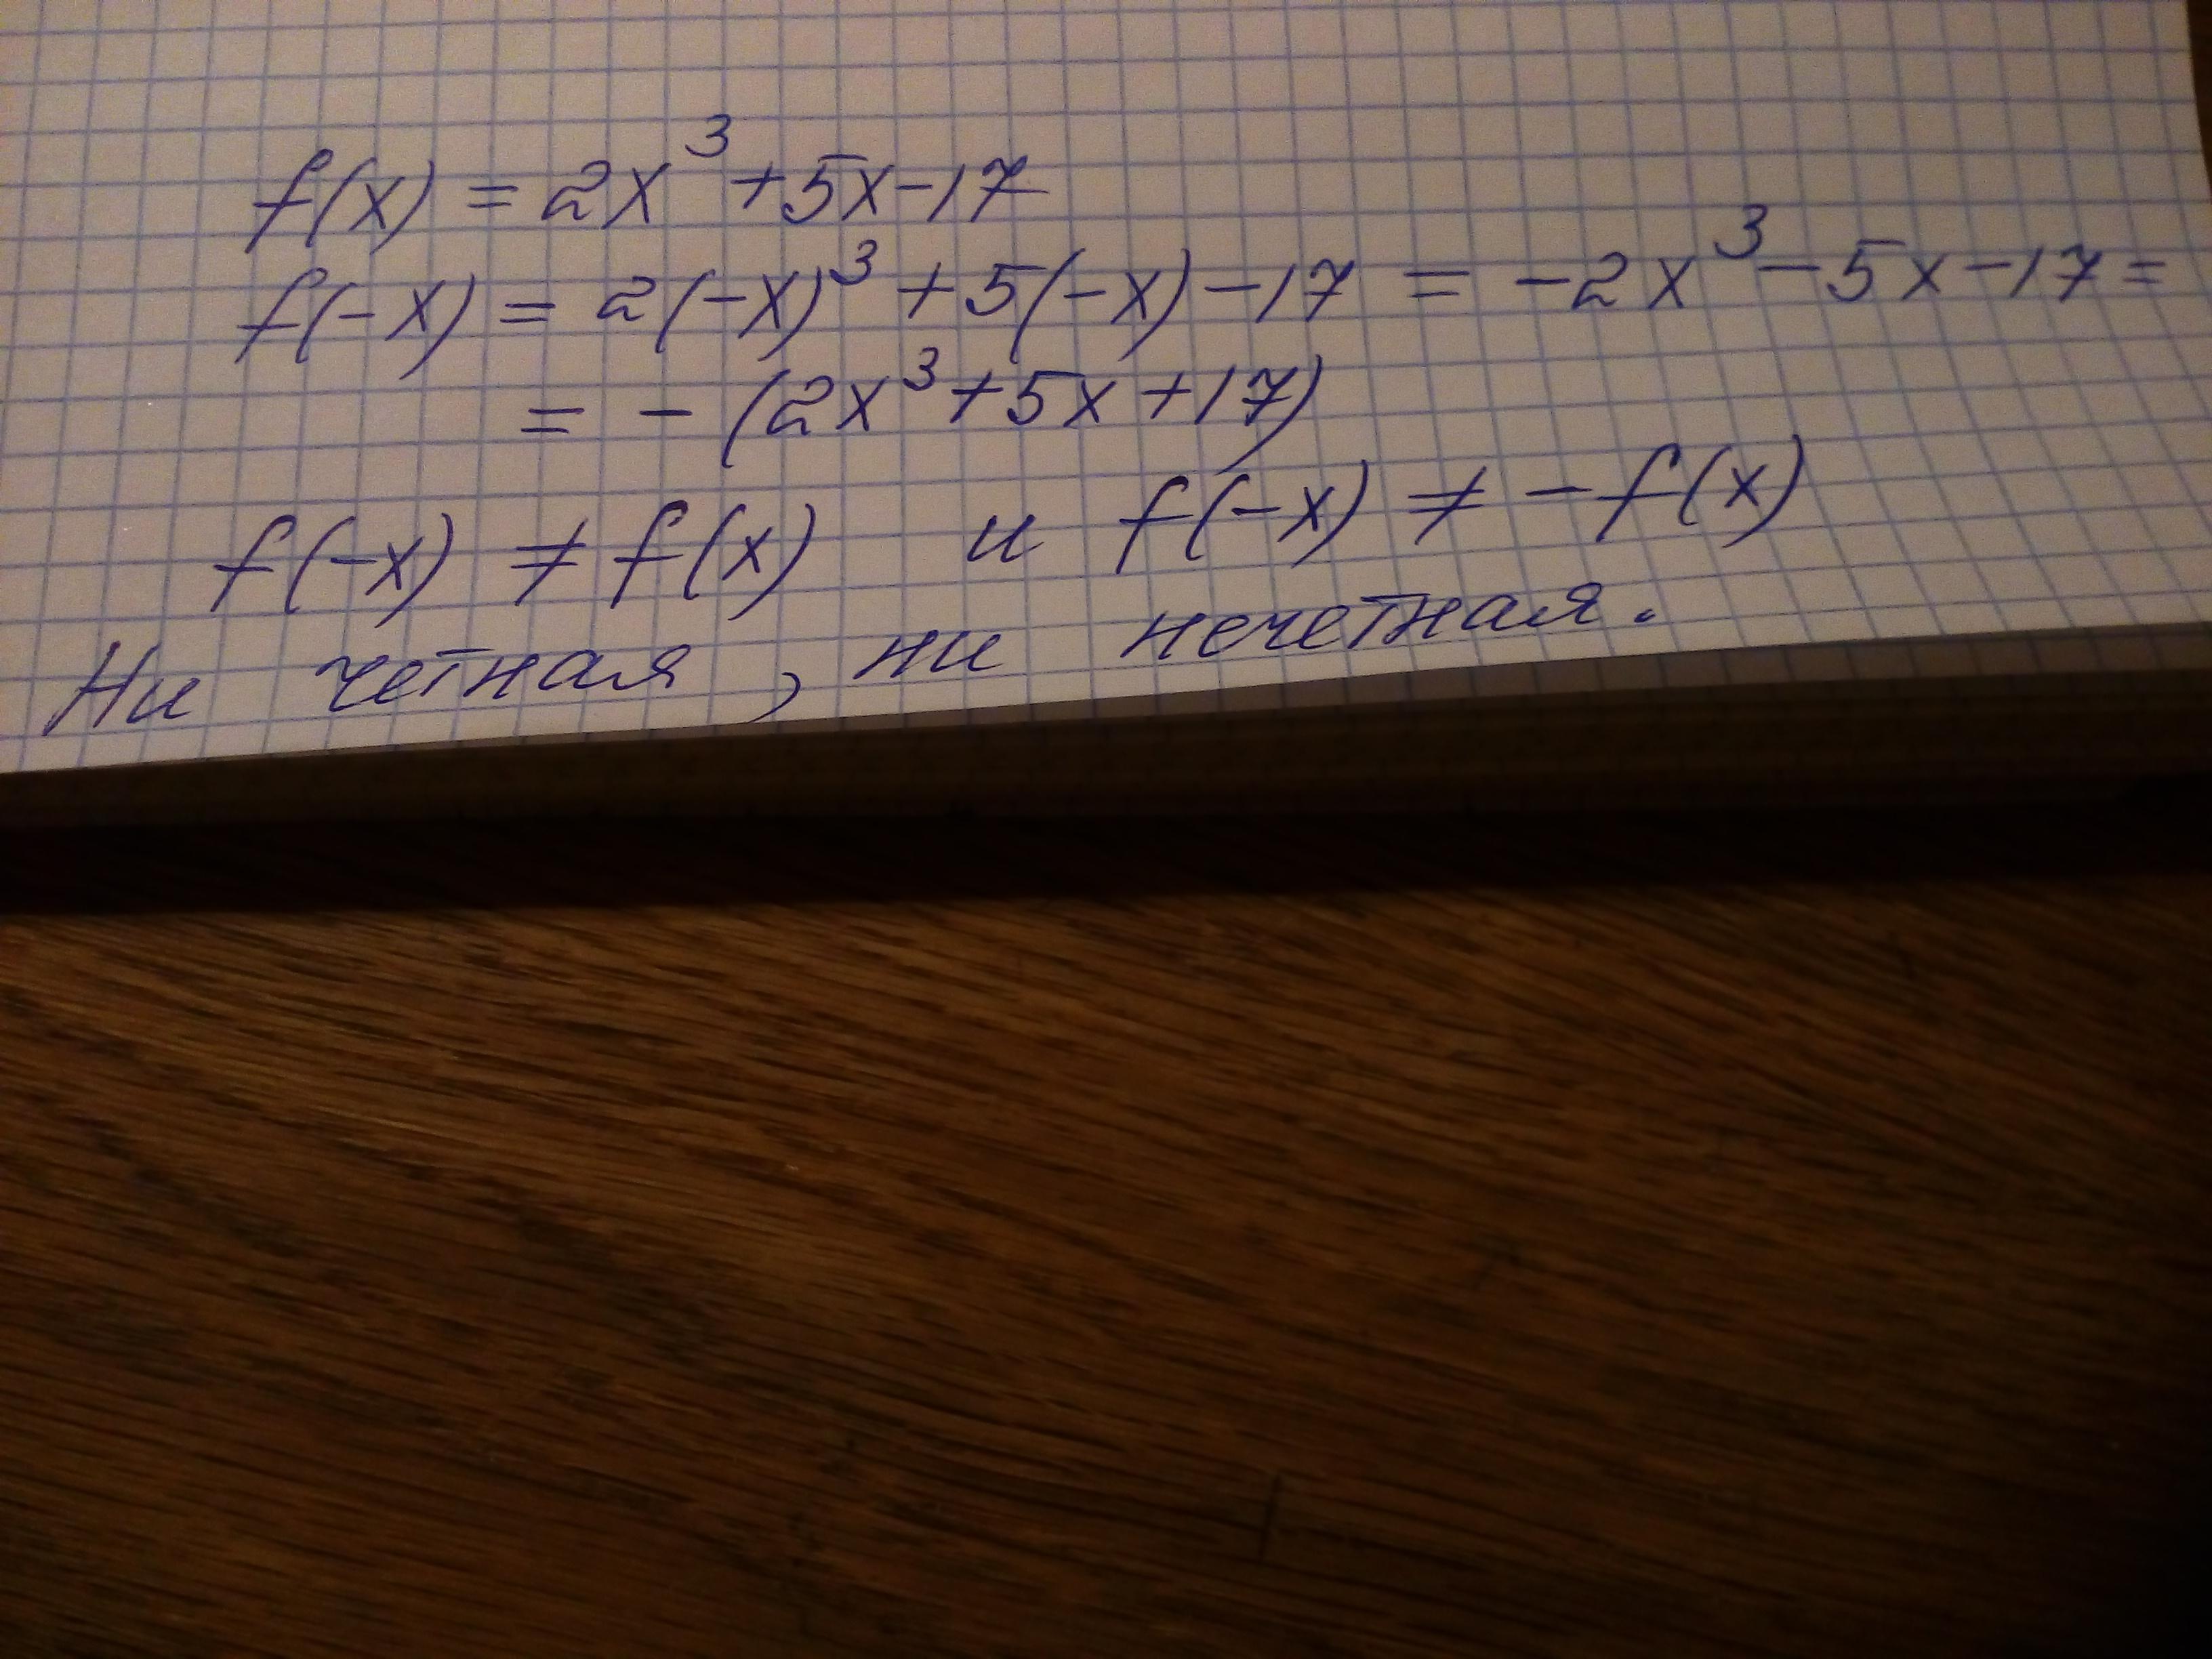 f(x) = 2x³ + 5x - 17
f(-x) = 2(-x)³ + 5(-x) - 17 = -2x³ - 5x - 17 =
= - (2x³ + 5x + 17)
f(-x) ≠ f(x) и f(-x) ≠ - f(x)
Ни четная, ни нечетная.